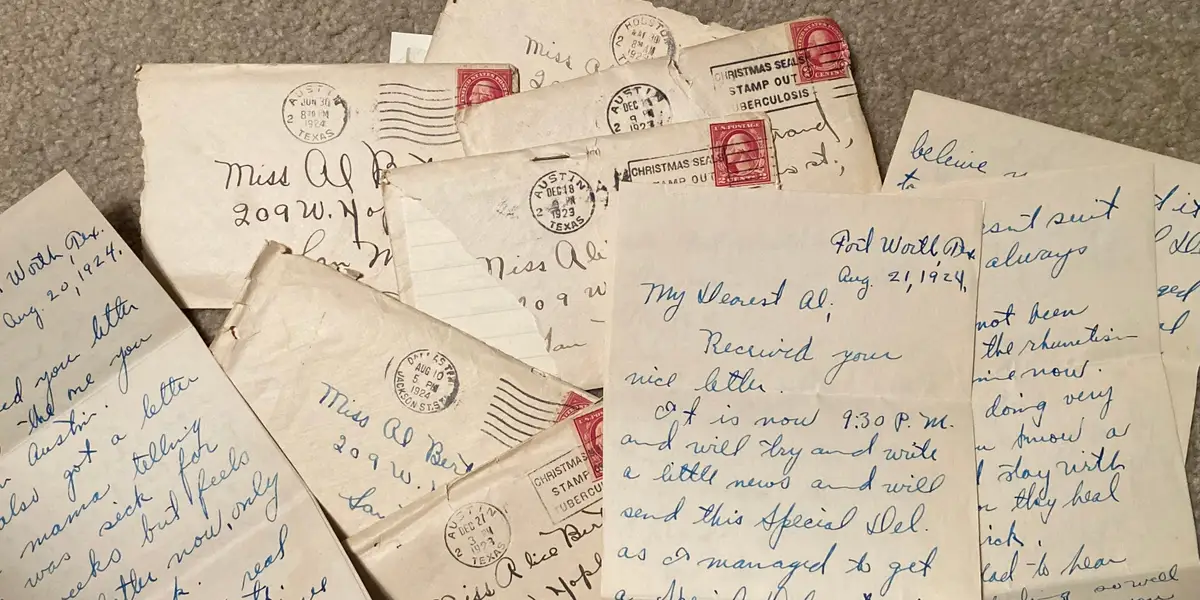 AUSTIN
JUN 30
8 PM
1924
TEXAS
2
Miss Al B
209 W.
HOUSTON
1923
2
Miss A
AUSTIN
DEC
9 PM
1923
2
CHRISTMAS SEALS
STAMP OUT
TUBERCULOSIS
CENTS
AUSTIN
DEC 18
1923
TEXAS
2
CHRISTMAS SEALS
STAMP OUT
U.S. POSTAGE
Miss Ali
209 W
San
DALLAS, TEX.
AUG 10
5 PM
1924
JACKSON ST. STA.
Miss Al Bert
209 W.
San
AUSTIN
DEC 27
3 PM
1923
TEXAS
2
CHRISTMAS
STAMP O
TUBERCU
Miss Alice Bert
Worth, Tex.
Aug 20, 1924.
your letter
the one you
Austin. you
also got a letter
mama telling
was sick for
weeks but feels
now, only
real
Fort Worth, Tex.
Aug. 21, 1924.
My Dearest Al,
Received your
nice letter.
It is now 9:30 P.M.
and will try and write
a little news and will
send this Special Del.
as I managed to get
believe
sn't sent
always
not been
the rhumetism
me now.
doing very
know a
stay with
they heal
sick.
to hear
so well